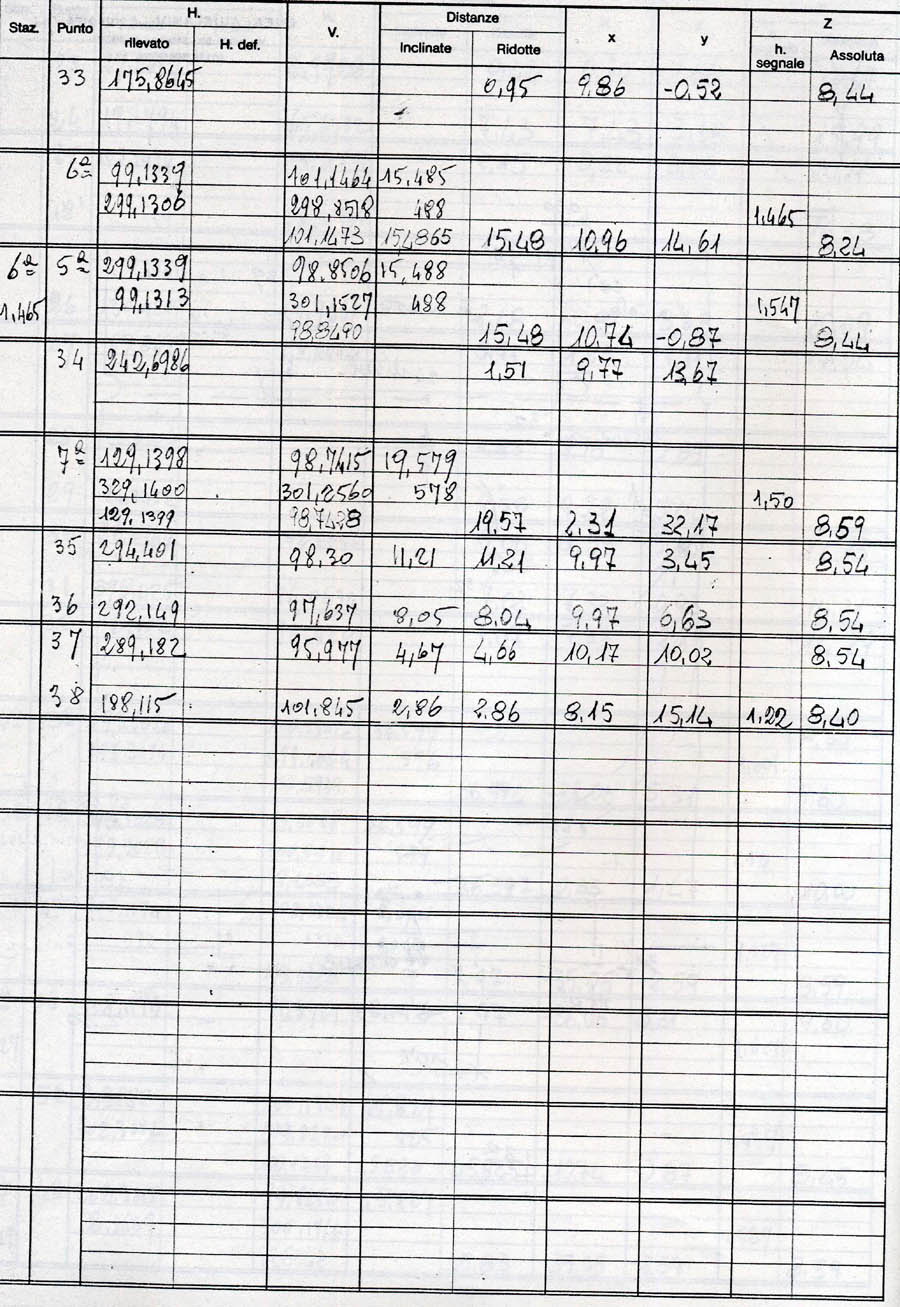 H. Distanze Z
Staz. Punto V. x y
rilevato H. def. Inclinate Ridotte h. segnale Assoluta
33 175,8645 0,95 9,86 -0,52 8,44
6ª 99,1339 101,1464 15,485
299,1306 298,8518 488 1,465
101,1473 154865 15,48 10,96 14,61 8,24
6ª 5ª 299,1339 98,8506 15,488
1,465 99,1313 301,1527 488 1,547
98,8490 15,48 10,74 -0,87 8,44
34 242,6986 1,51 9,77 13,67
7ª 129,1398 98,7415 19,579
329,1400 301,2560 578 1,50
129,1399 98,7428 19,57 2,31 32,17 8,59
35 294,401 98,30 11,21 11,21 9,97 3,45 8,54
36 292,149 97,637 8,05 8,04 9,97 6,63 8,54
37 289,182 95,977 4,67 4,66 10,17 10,02 8,54
38 188,115 101,845 2,86 2.86 8,15 15,14 1,22 8,40